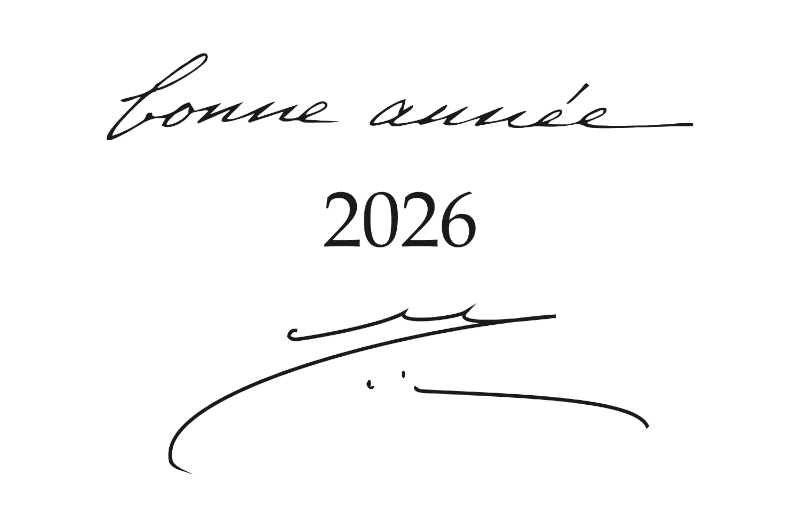 bonne année
2026